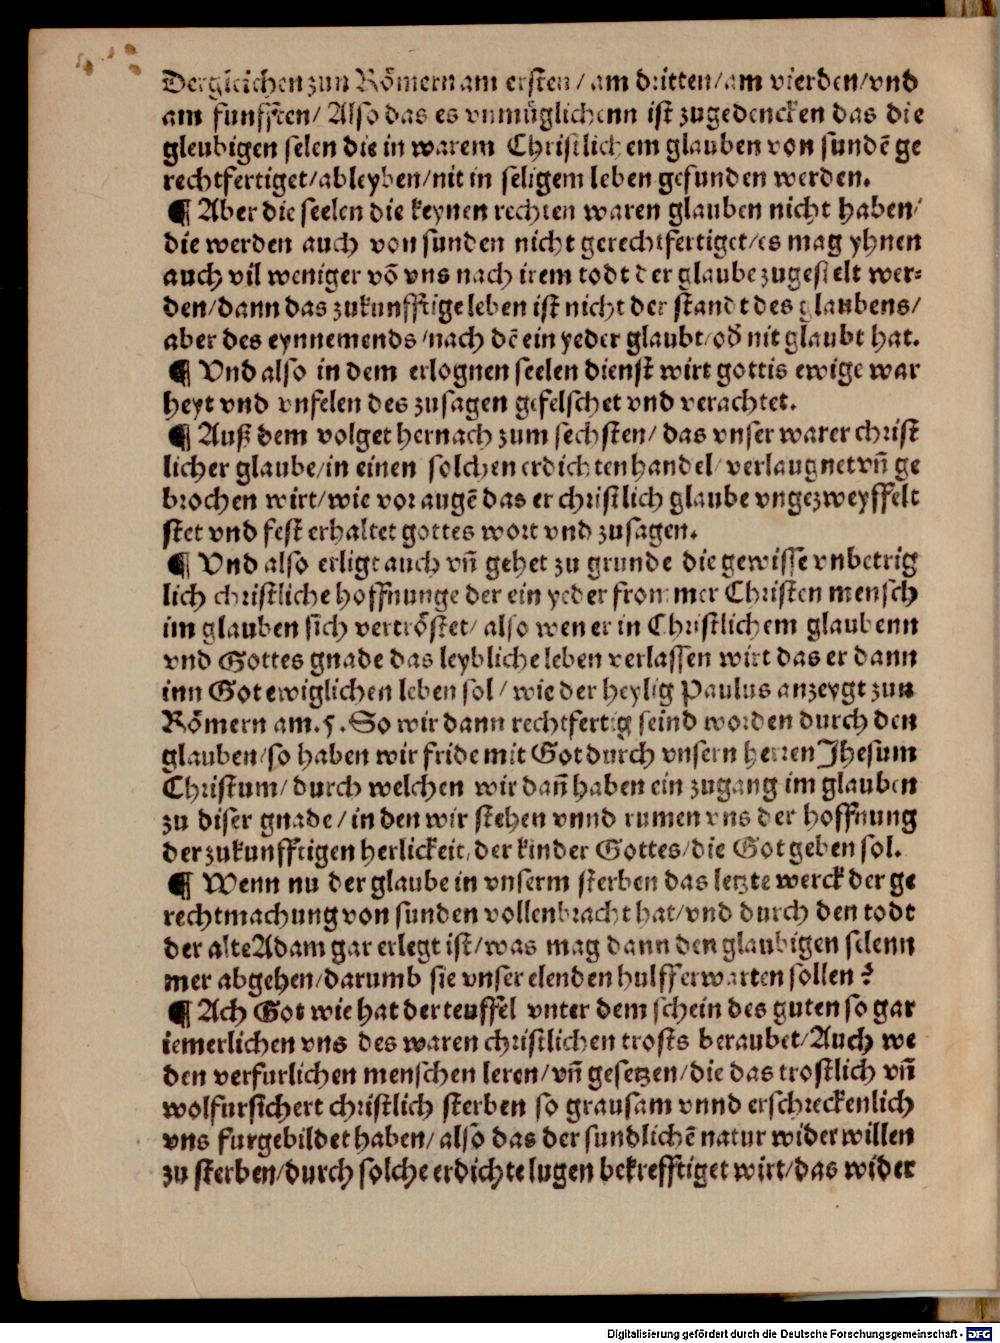 Dergleichen zun Rőmern am ersten / am dritten / am vierden / vnd
am funfften / Also das es vnmüglichenn ist zugedencken das die
gleubigen selen die in warem Christlichem glauben von sundē ge
rechtfertiget / ableyben / nit in seligem leben gefunden werden.
¶ Aber die seelen die keynen rechten waren glauben nicht haben /
die werden auch von sunden nicht gerechtfertiget / es mag yhnen
auch vil weniger vō vns nach irem todt der glaube zugestelt wer⸗
den / dann das zukunfftige leben ist nicht der standt des glaubens /
aber des eynnemends / nach dē ein yeder glaubt / od̕ nit glaubt hat.
¶ Vnd also in dem erlognen seelen dienst wirt gottis ewige war
heyt vnd vnfelen des zusagen gefelschet vnd verachtet.
¶ Auß dem volget hernach zum sechsten / das vnser warer christ
licher glaube / in einen solchen erdichten handel / verlaugnet vn̄ ge
brochen wirt / wie vor augē das er christlich glaube vngezweyffelt
stet vnd fest erhaltet gottes wort vnd zusagen.
¶ Vnd also erligt auch vn̄ gehet zu grunde die gewisse vnbetrig
lich christliche hoffnunge der ein yeder frommer Christen mensch
im glauben sich vertröstet / also wen er in Christlichem glaubenn
vnd Gottes gnade das leybliche leben verlassen wirt das er dann
inn Got ewiglichen leben sol / wie der heylig Paulus anzeygt zun
Rőmern am .5. So wir dann rechtfertig seind worden durch den
glauben / so haben wir fride mit Got durch vnsern herren Jhesum
Christum / durch welchen wir dan̄ haben ein zugang im glauben
zu diser gnade / in den wir stehen vnnd rumen vns der hoffnung
der zukunfftigen herlickeit, der kinder Gottes / die Got geben sol.
¶ Wenn nu der glaube in vnserm sterben das letzte werck der ge
rechtmachung von sunden vollenbracht hat / vnd durch den todt
der alte Adam gar erlegt ist / was mag dann den glaubigen selenn
mer abgehen / darumb sie vnser elenden hulff erwarten sollen ?
¶ Ach Got wie hat der teuffel vnter dem schein des guten so gar
iemerlichen vns des waren christlichen trosts beraubet / Auch we
den verfurlichen menschen leren / vn̄ gesetzen / die das trostlich vn̄
wolfursichert christlich sterben so grausam vnnd erschreckenlich
vns furgebildet haben / also das der sundlichē natur widerwillen
zu sterben / durch solche erdichte lugen bekrefftiget wirt / das wider
Digitalisierung gefördert durch die Deutsche Forschungsgemeinschaft - DFG